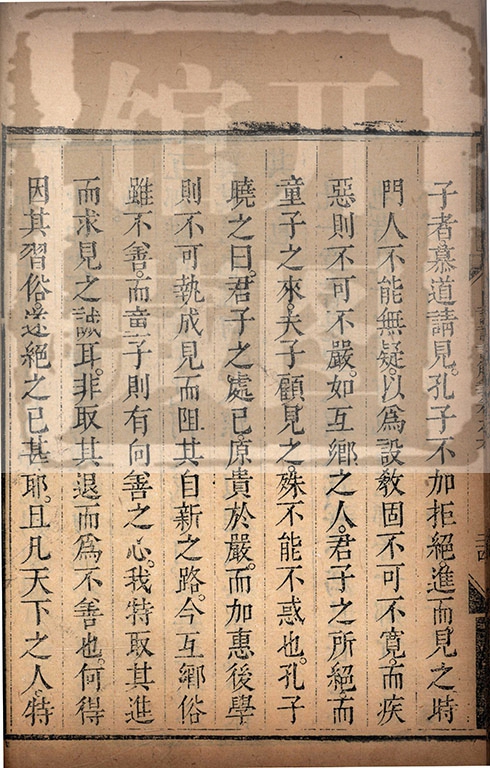 子者。慕道請見。孔子不加拒絕。進而見之時
門人不能無疑。以爲設教固不可不寬。而疾
惡則不可不嚴。如互鄉之人。君子之所絕。而
童子之來。夫子顧見之。殊不能不惑也。孔子
曉之曰。君子之處己。原貴於嚴。而加惠後學
則不可執成見而阻其自新之路。今互鄉俗
雖不善。而童子則有向善之心。我特取其進
而求見之誠耳。非取其退而爲不善也。何得
因其習俗。遂絕之已甚耶。且凡天下之人。特